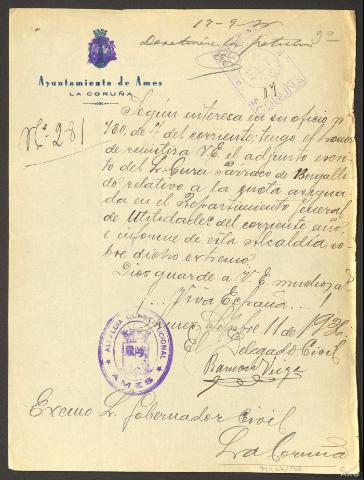 17-9-36
9º
Desestimar la petición
Ayuntamiento de Ames
LA CORUÑA
Nº 281
Según interesa en su oficio nº
730, de 7 del corriente, tengo el honor
de remitir a V. E. el adjunto escri-
to del Sr. Cura Párroco de Bugalli-
do relativo a la cuota asigna-
da en el Repartimiento General
de Utilidades del corriente año
e informe de esta Alcaldía so-
bre dicho extremo.
Dios guarde a V. E. muchos a.
¡... Viva España ...!
Ames, Sepbre 11 de 1936.
El Delegado Civil
Ramón
ALCALDIA CONSTITUCIONAL
AMES
Excmo Sr. Gobernador Civil
La Coruña